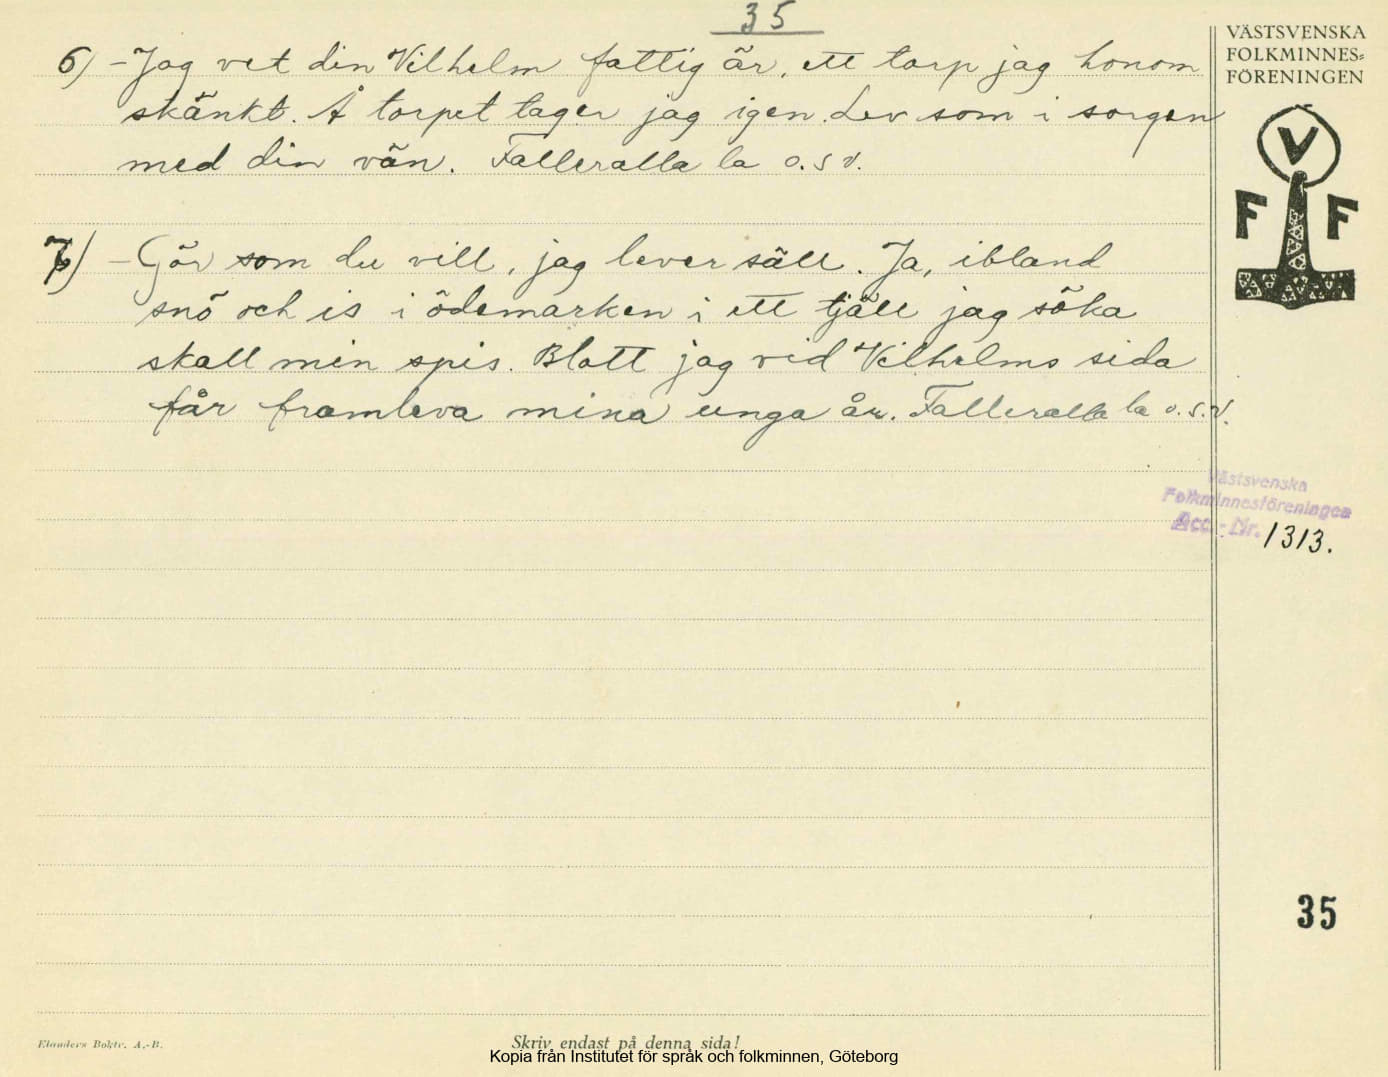 35
6) – Jag vet din Vilhelm fattig är, ett torp jag honom
skänkt. Å torpet tager jag igen. Lev som i sorgen
med din vän. Falleralla la o.s.v.
7) – Gör som du vill, jag lever säll. Ja, ibland
snö och is i ödemarken i ett tjäll jag söka
skall min spis. Blott jag vid Vilhelms sida
får framleva mina unga år. Falleralla la o.s.v.
VÄSTSVENSKA
FOLKMINNES=
FÖRENINGEN
V
F F
Västsvenska
Folkminnesföreningen
Acc.-Nr. 1313.
35
Elanders Boktr. A.-B.
Skriv endast på denna sida!
Kopia från Institutet för språk och folkminnen, Göteborg